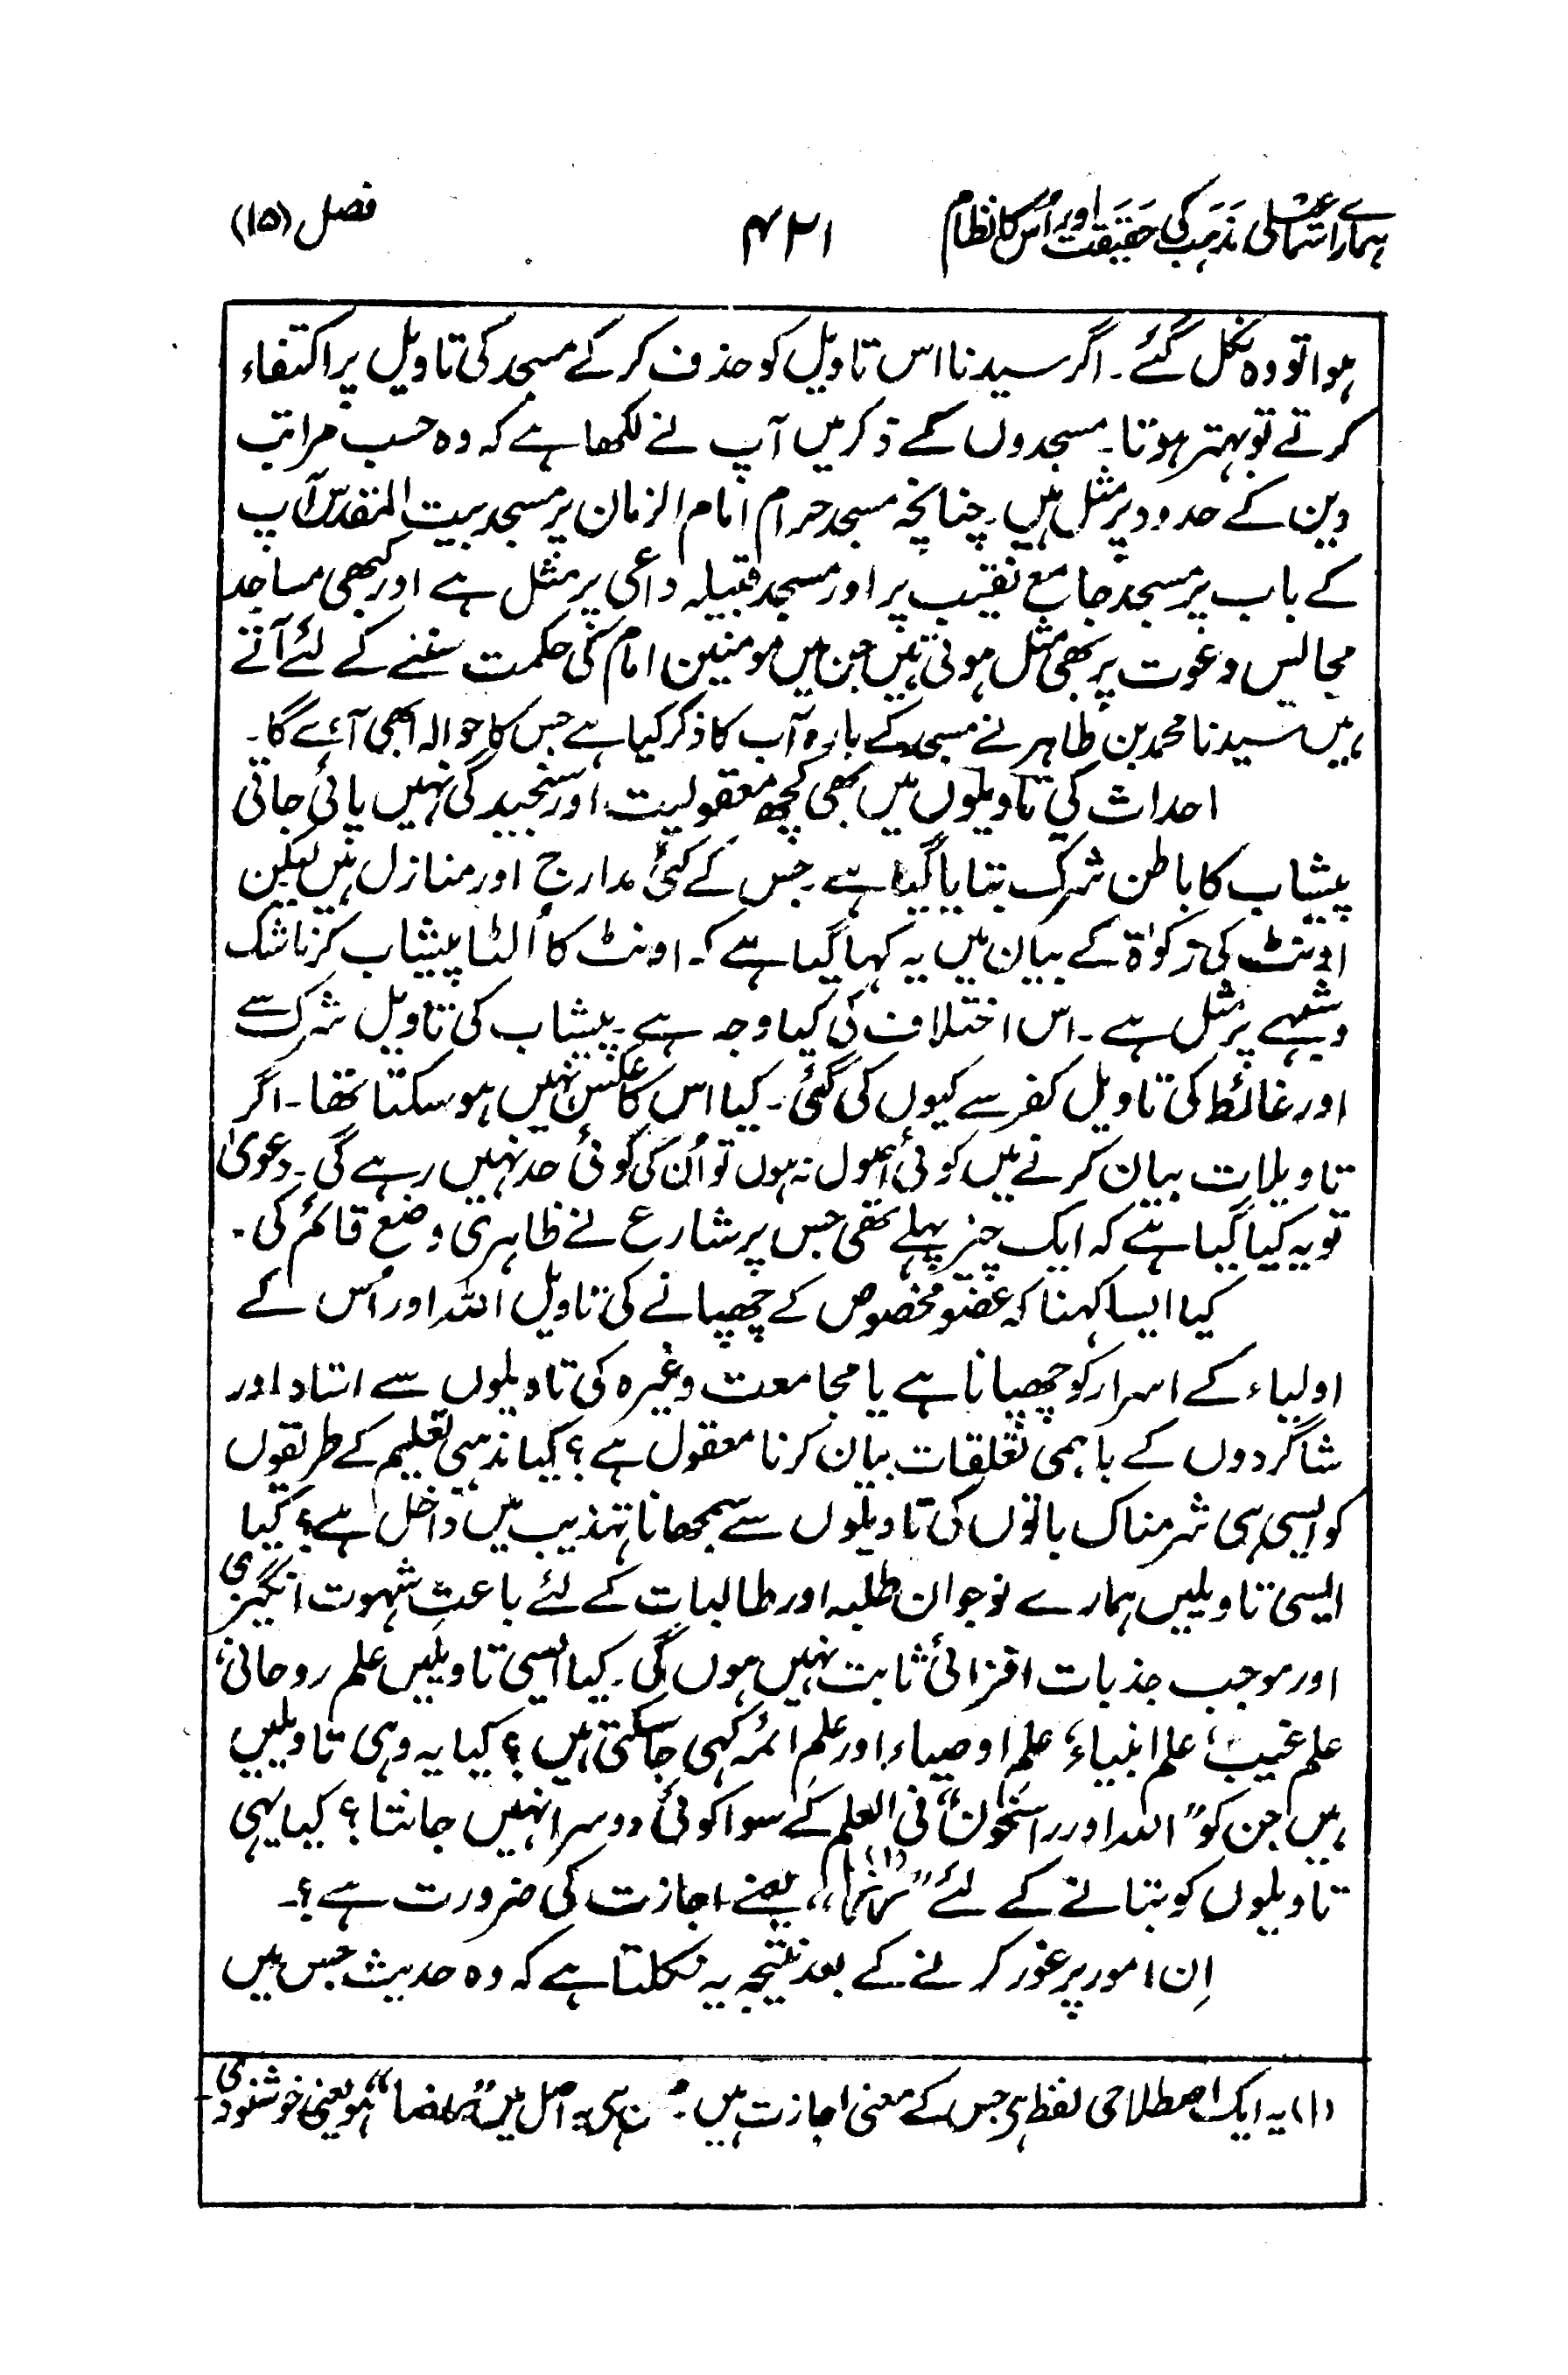 ہمارے اسماعیلی مذہب کی حقیقت اور اس کا نظام ۴۲۱ فصل (۱۵)
ہوا تو وہ نکل گئے۔ اگر سیدنا اس تاویل کو حذف کر کے مسجد کی تاویل پر اکتفاء
کرتے تو بہتر ہوتا۔ مسجدوں کے ذکر میں آپ نے لکھا ہے کہ وہ حسب مراتب
دین کے حدود پر مثل ہیں۔ چنانچہ مسجد حرام امام الزمان پر مسجد بیت المقدس آپ
کے باب پر مسجد جامع نقیب پر اور مسجد قبیلہ داعی پر مثل ہے اور کبھی مساجد
مجالیس دعوت پر بھی مثل ہوتی ہیں جن میں مومنین امام کی حکمت سننے کے لئے آتے
ہیں سیدنا محمد بن طاہر نے مسجد کے بارہ آب کا ذکر کیا ہے جس کا حوالہ ابھی آئے گا۔
احداث کی تاویلوں میں بھی کچھ معقولیت اور سنجیدگی نہیں پائی جاتی
پیشاب کا باطن شرک بتایا گیا ہے۔ جس کے کئی مدارج اور منازل ہیں لیکن
اونٹ کی زکوٰۃ کے بیان میں یہ کہا گیا ہے کہ اونٹ کا اُلٹا پیشاب کرنا شک
و شبہے پر مثل ہے۔ اس اختلاف کی کیا وجہ ہے۔ پیشاب کی تاویل شرک سے
اور غائط کی تاویل کفر سے کیوں کی گئی۔ کیا اس کا عکس نہیں ہو سکتا تھا۔ اگر
تاویلات بیان کرنے میں کوئی اصول نہ ہوں تو اُن کی کوئی حد نہیں رہے گی۔ دعویٰ
تو یہ کیا گیا ہے کہ ایک چیز پہلے تھی جس پر شارع نے ظاہری وضع قائم کی۔
کیا ایسا کہنا کہ عضو مخصوص کے چھپانے کی تاویل اللہ اور اُس کے
اولیاء کے اسرار کو چھپانا ہے یا مجامعت وغیرہ کی تاویلوں سے استاد اور
شاگردوں کے باہمی تعلقات بیان کرنا معقول ہے؟ کیا مذہبی تعلیم کے طریقوں
کو ایسی ہی شرمناک باتوں کی تاویلوں سے سمجھانا تہذیب میں داخل ہے؟ کیا
ایسی تاویلیں ہمارے نوجوان طلبہ اور طالبات کے لئے باعث شہوت انگیزی
اور موجب جذبات افزائی ثابت نہیں ہوں گی۔ کیا ایسی تاویلیں علم روحانی،
علم غیب، علم انبیاء، علم اوصیاء اور علم ائمہ کہی جا سکتی ہیں؟ کیا یہ وہی تاویلیں
ہیں جن کو ”اللہ اور راسخون“ فی العلم کے سوا کوئی دوسرا نہیں جانتا؟ کیا یہی
تاویلوں کو بتانے کے لئے (۱) یعنے اجازت کی ضرورت ہے؟۔
اِن امور پر غور کرنے کے بعد نتیجہ یہ نکلتا ہے کہ وہ حدیث جس میں
(۱) یہ ایک اصطلاحی لفظ ہی جس کے معنی اجازت ہیں۔ یہ اصل میں ”رضا“ ہو یعنی خوشنودی